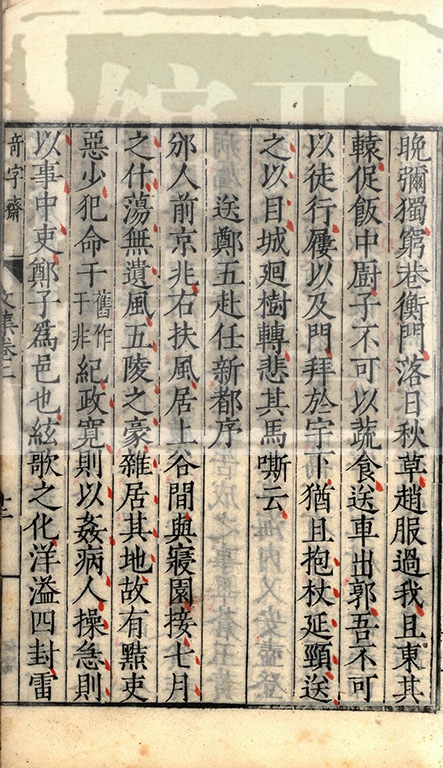 晚彌獨窮巷衡門落日秋草趙服過我且東其
轅促飯中廚子不可以蔬食送車出郭吾不可
以徒行屨以及門拜於宇下猶且抱杖延頸送
之以目城廻樹轉悲其馬嘶云
送鄭五赴任新都序
邠人前京兆右扶風居上谷間與寢園接七月
之什蕩無遺風五陵之豪雜居其地故有黠吏
惡少犯命干舊作干非紀政寬則以姦病人操急則
以事中吏鄭子為邑也絃歌之化洋溢四封雷
奇字齋
文集卷二